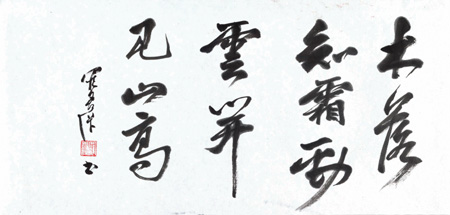 木落
知霜勁
雲開
見山高